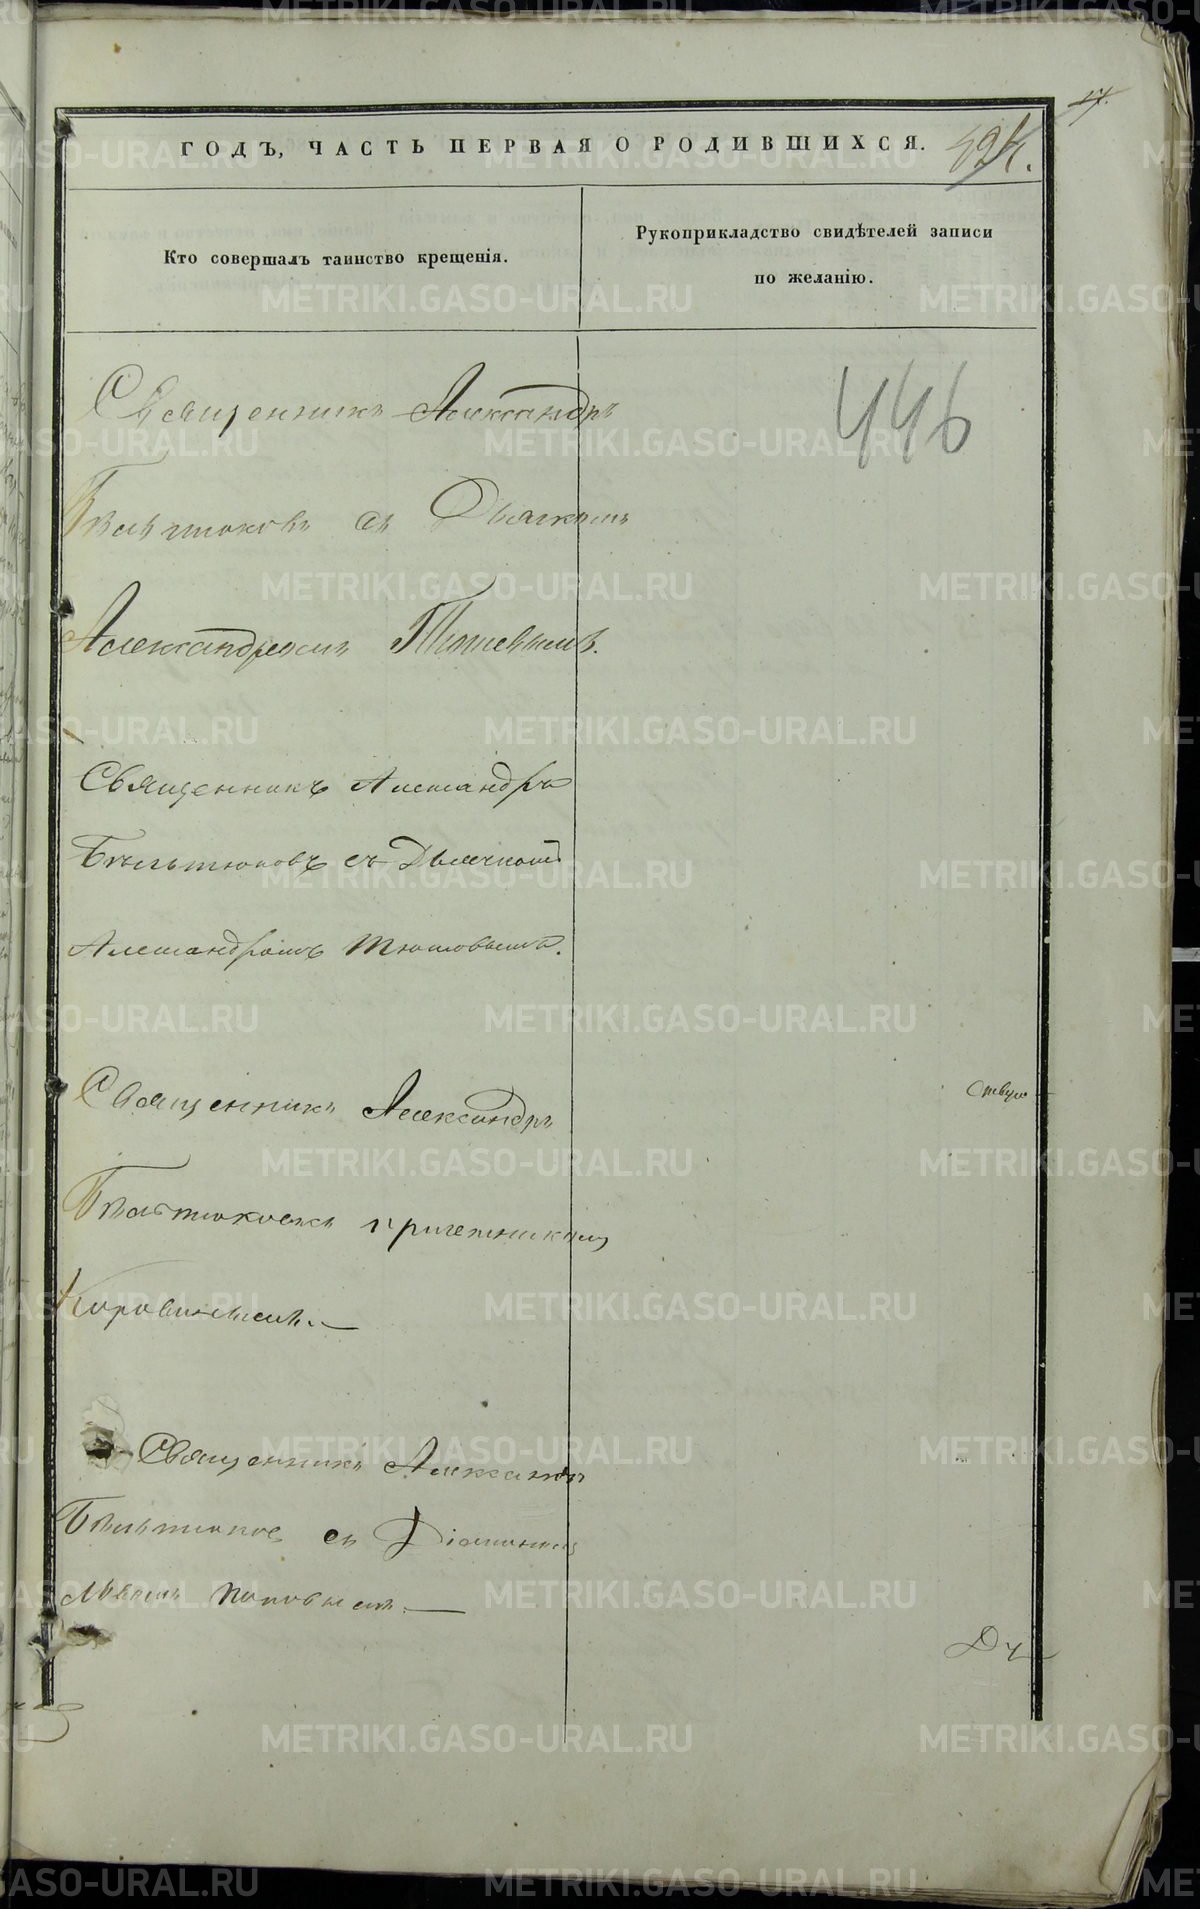 17.
ГОДЪ, ЧАСТЬ ПЕРВАЯ О РОДИВШИХСЯ.
Кто совершалъ таинство крещенія.
Рукоприкладство свидѣтелей записи
по желанію.
446
Священникъ Александръ
Бѣльтюковъ съ Дьячкомъ
Александромъ
Священникъ Александръ
Бѣльтюковъ съ Дьячкомъ
Александромъ
Священникъ Александръ
Бѣльтюковъ причетникомъ
Коровинымъ.
Священникъ
Бѣльтюковъ съ Діакономъ
Львомъ Поповымъ
METRIKI.GASO-URAL.RU